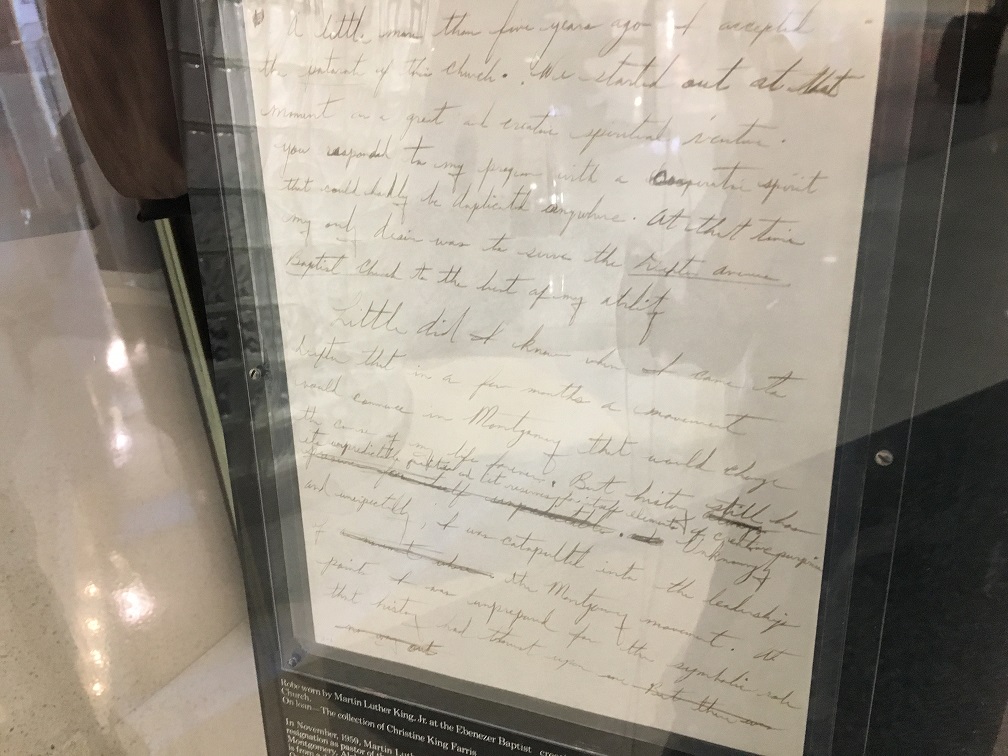 A little more than five years ago I accepted
the pastorate of this church. We started out at that
moment in a great and creative spiritual venture.
You responded to my program with a cooperative spirit
that could hardly be duplicated anywhere. At that time
my only desire was to serve the Dexter Avenue
Baptist Church to the best of my ability
Little did I know when I came to
Dexter that in a few months a movement
would commence in Montgomery that would change
the course of my life forever. But history still has
its unpredictable qualities
unpredictable. Unknowingly
and unexpectedly, I was catapulted into the leadership
of the Montgomery movement. At
point I was unprepared for the symbolic role
that history had thrust upon me. But there
no way out
Robe worn by Martin Luther King, Jr. at the Ebenezer Baptist
Church.
On loan—The collection of Christine King Farris
In November, 1959, Martin
resignation as pastor of
Montgomery,